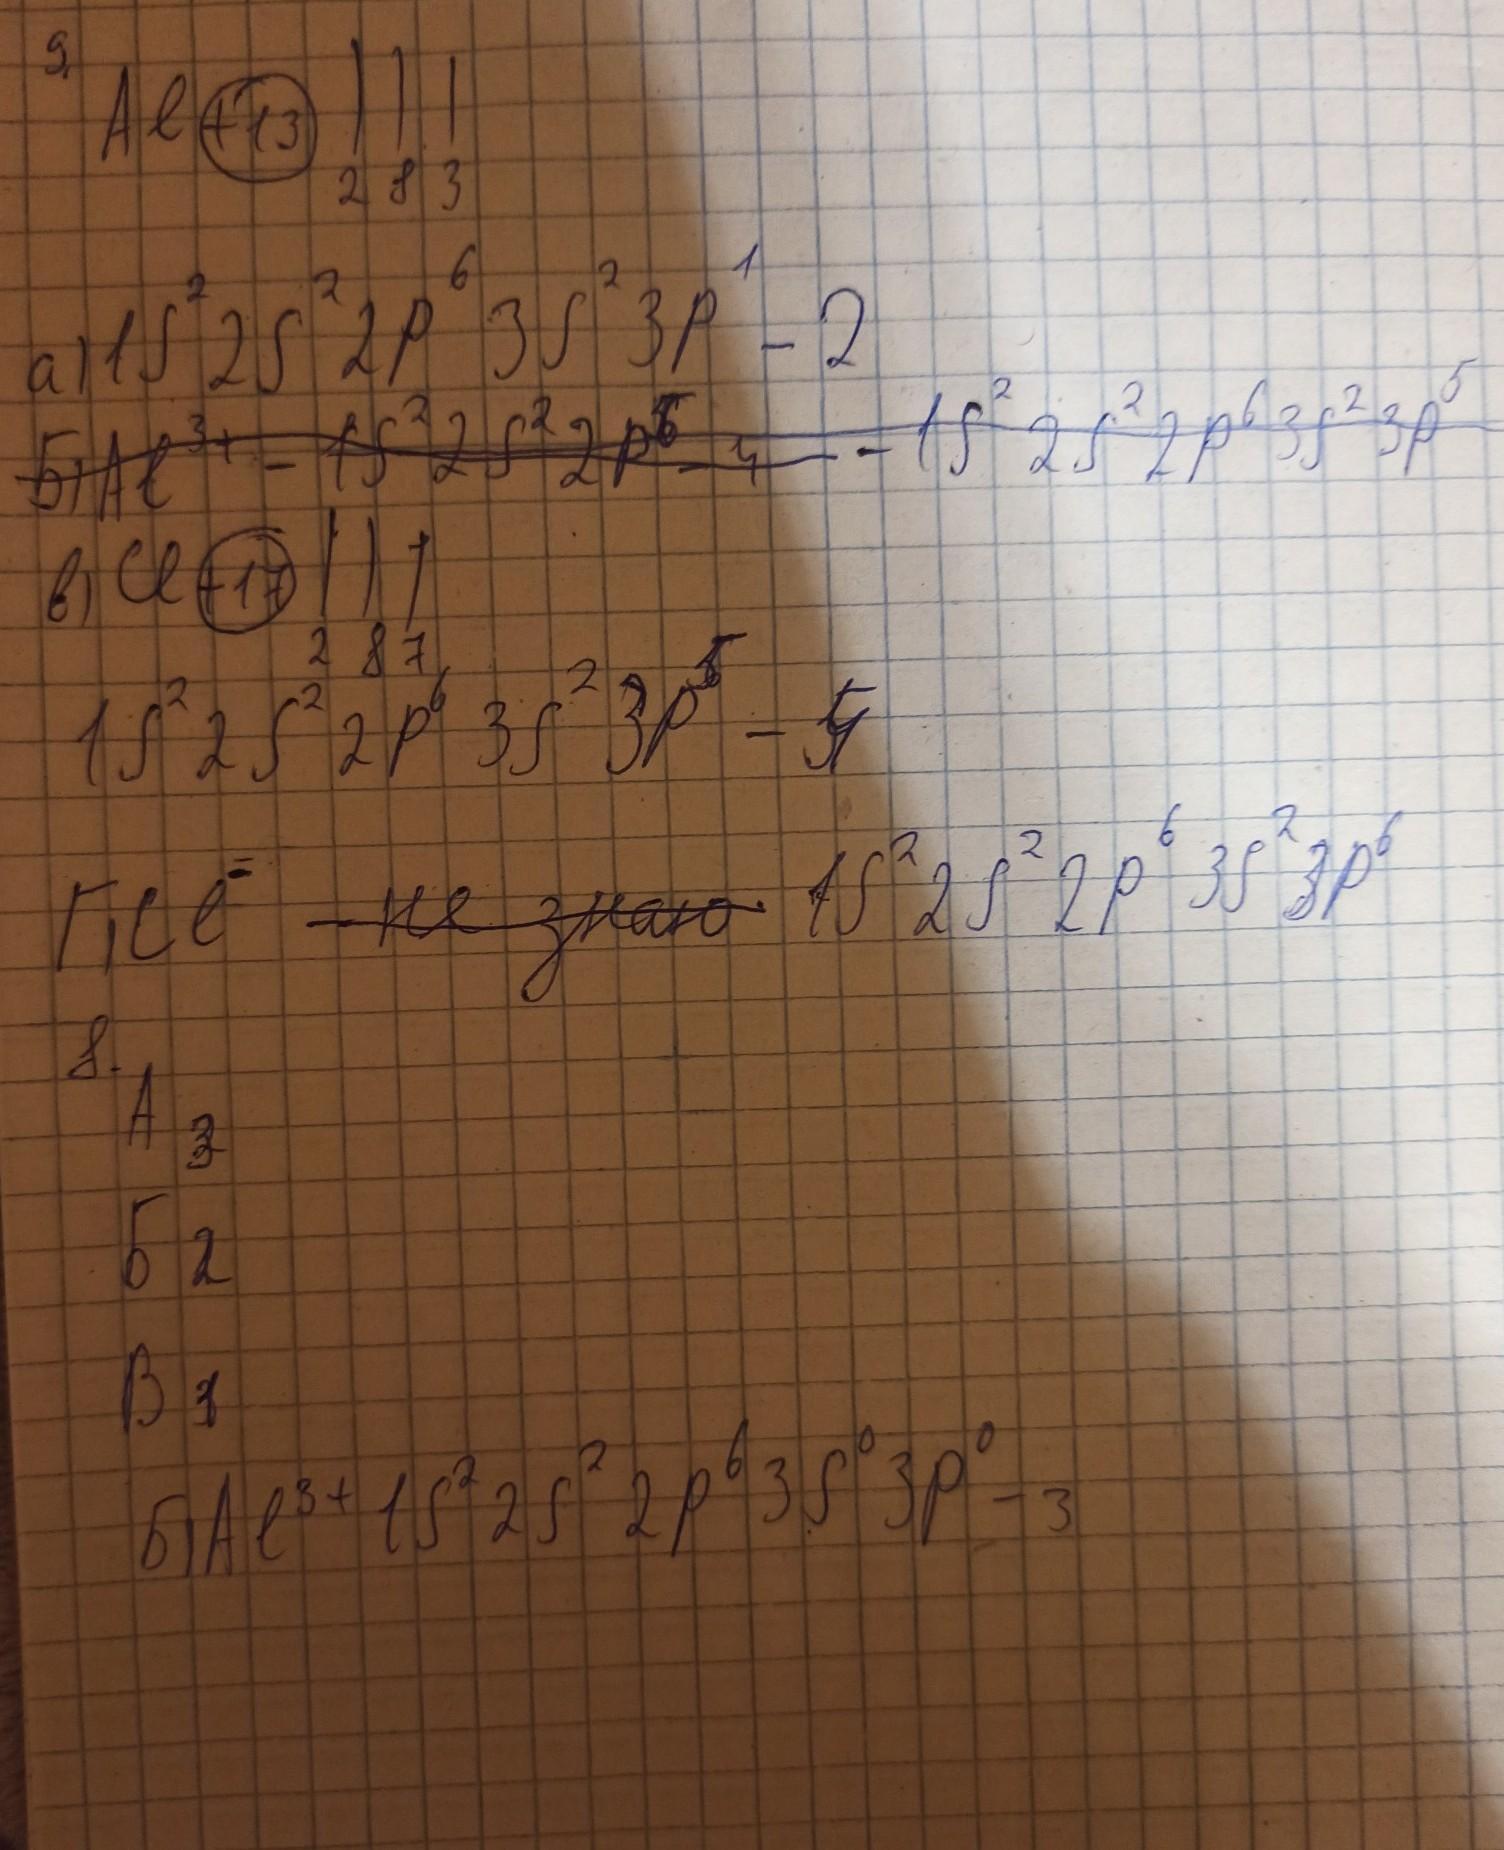 9.
Al +13
2 8 3
а) 1s² 2s² 2p⁶ 3s² 3p¹ - 2
Б) Al³⁺ - 1s² 2s² 2p⁶ - 4 - 1s² 2s² 2p⁶ 3s² 3p⁵
в) Cl +17
2 8 7
1s² 2s² 2p⁶ 3s² 3p⁵ -
Г) Cl⁻ - не знаю 1s² 2s² 2p⁶ 3s² 3p⁶
8.
А 3
Б 2
В 1
Б) Al³⁺ 1s² 2s² 2p⁶ 3s⁰ 3p⁰ - 3